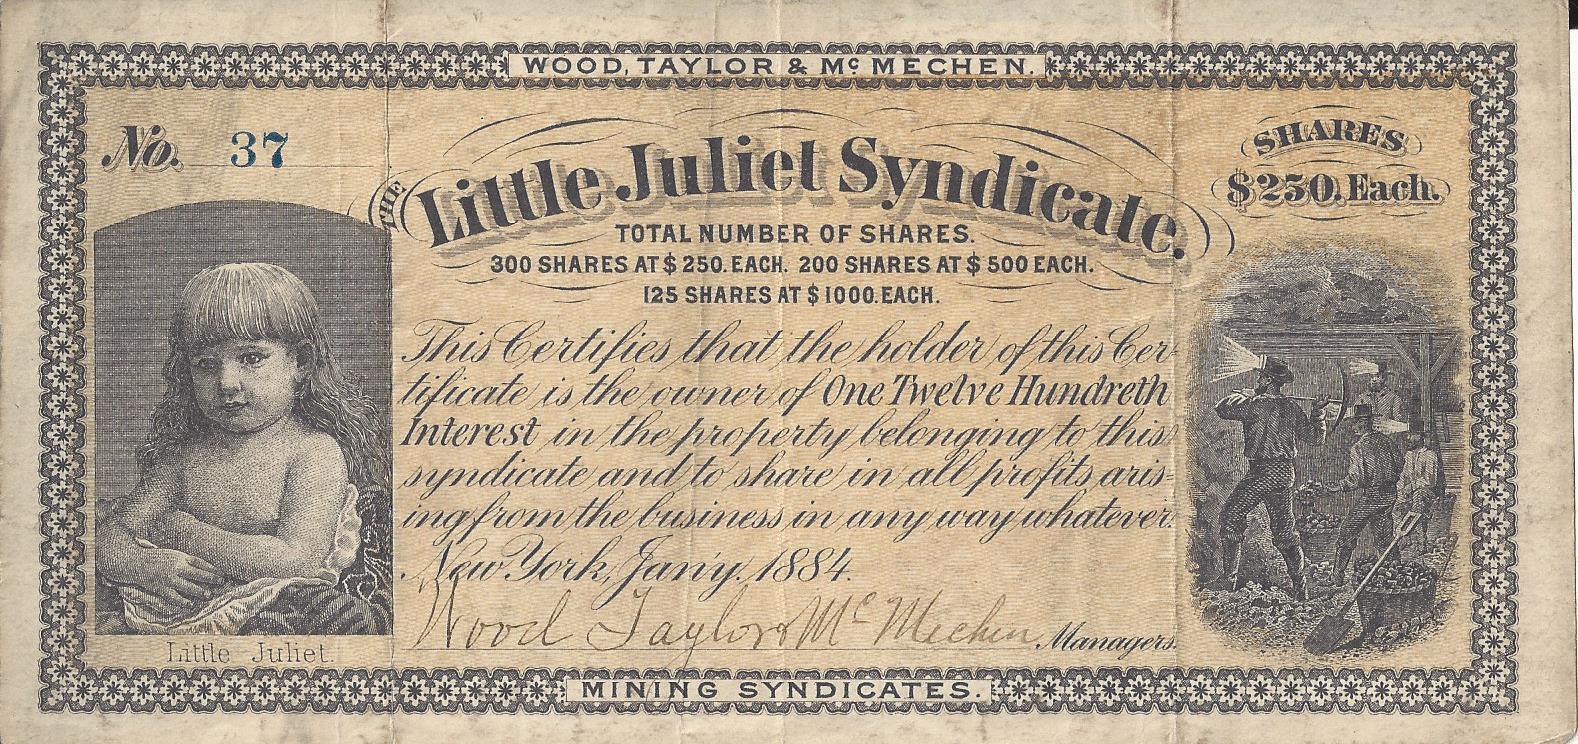 WOOD, TAYLOR & Mc MECHEN.
No. 37
THE Little Juliet Syndicate.
SHARES
$250. Each.
TOTAL NUMBER OF SHARES.
300 SHARES AT $250. EACH. 200 SHARES AT $500 EACH.
125 SHARES AT $1000. EACH.
This Certifies that the holder of this Cer-
tificate is the owner of One Twelve Hundreth
Interest in the property belonging to this
syndicate and to share in all profits aris-
ing from the business in any way whatever.
New York, Jan'y. 1884.
Wood Taylor & Mc Mechen Managers.
Little Juliet.
MINING SYNDICATES.